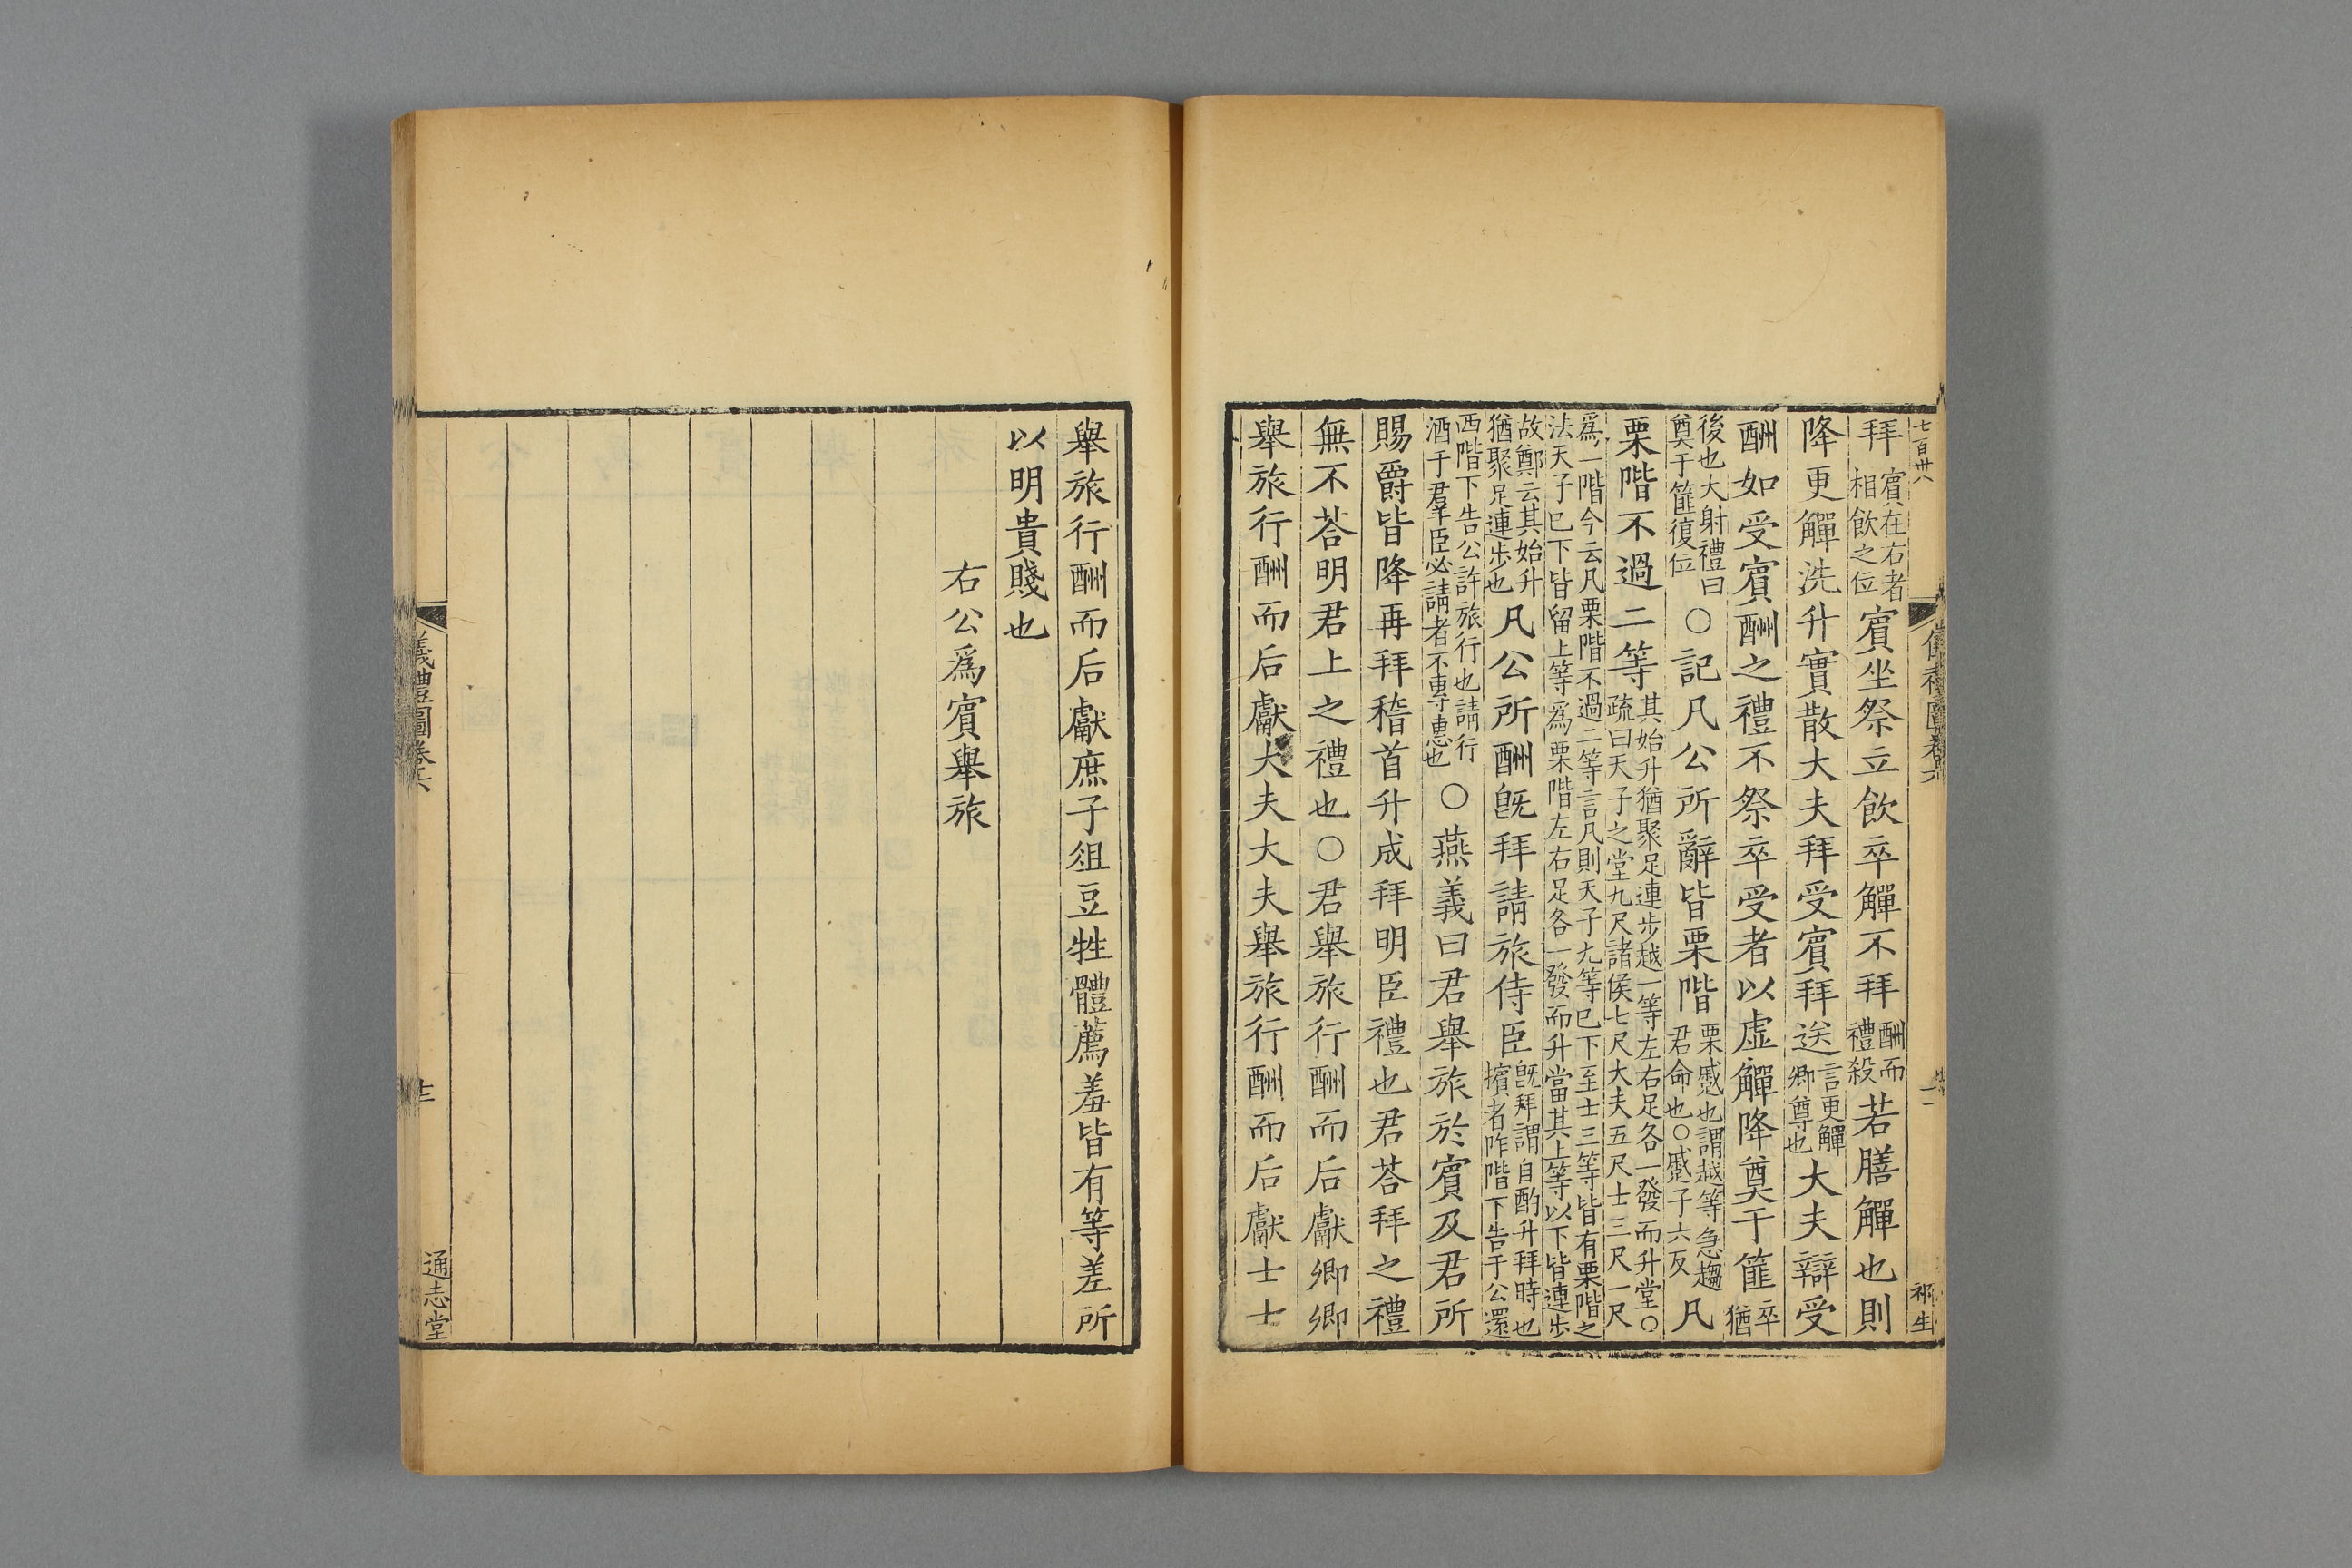 七百卅八
儀禮圖卷六
祁生
拜賓在右者相飲之位賓坐祭立飲卒觶不拜酬而禮殺若膳觶也則
降更觶洗升實散大夫拜受賓拜送言更觶卿尊也大夫辯受
酬如受賓酬之禮不祭卒受者以虛觶降奠于篚卒猶
後也大射禮曰奠于篚復位○記凡公所辭皆栗階栗蹙也謂越等急趨君命也○蹙子六反凡
栗階不過二等其始升猶聚足連步越一等左右足各一發而升堂○疏曰天子之堂九尺諸侯七尺大夫五尺士三尺一尺
爲一階今云凡栗階不過二等言凡則天子九等已下至士三等皆有栗階之法天子已下皆留上等爲栗階左右足各一發而升當其上等以下皆連步
故鄭云其始升猶聚足連步也凡公所酬旣拜請旅侍臣旣拜謂自酌升拜時也擯者阼階下告于公還
西階下告公許旅行也請行酒于羣臣必請者不專惠也○燕義曰君舉旅於賓及君所
賜爵皆降再拜稽首升成拜明臣禮也君荅拜之禮
無不荅明君上之禮也○君舉旅行酬而后獻卿卿
舉旅行酬而后獻大夫大夫舉旅行酬而后獻士士
舉旅行酬而后獻庶子俎豆牲體薦羞皆有等差所
以明貴賤也
右公爲賓舉旅
儀禮圖卷六
通志堂